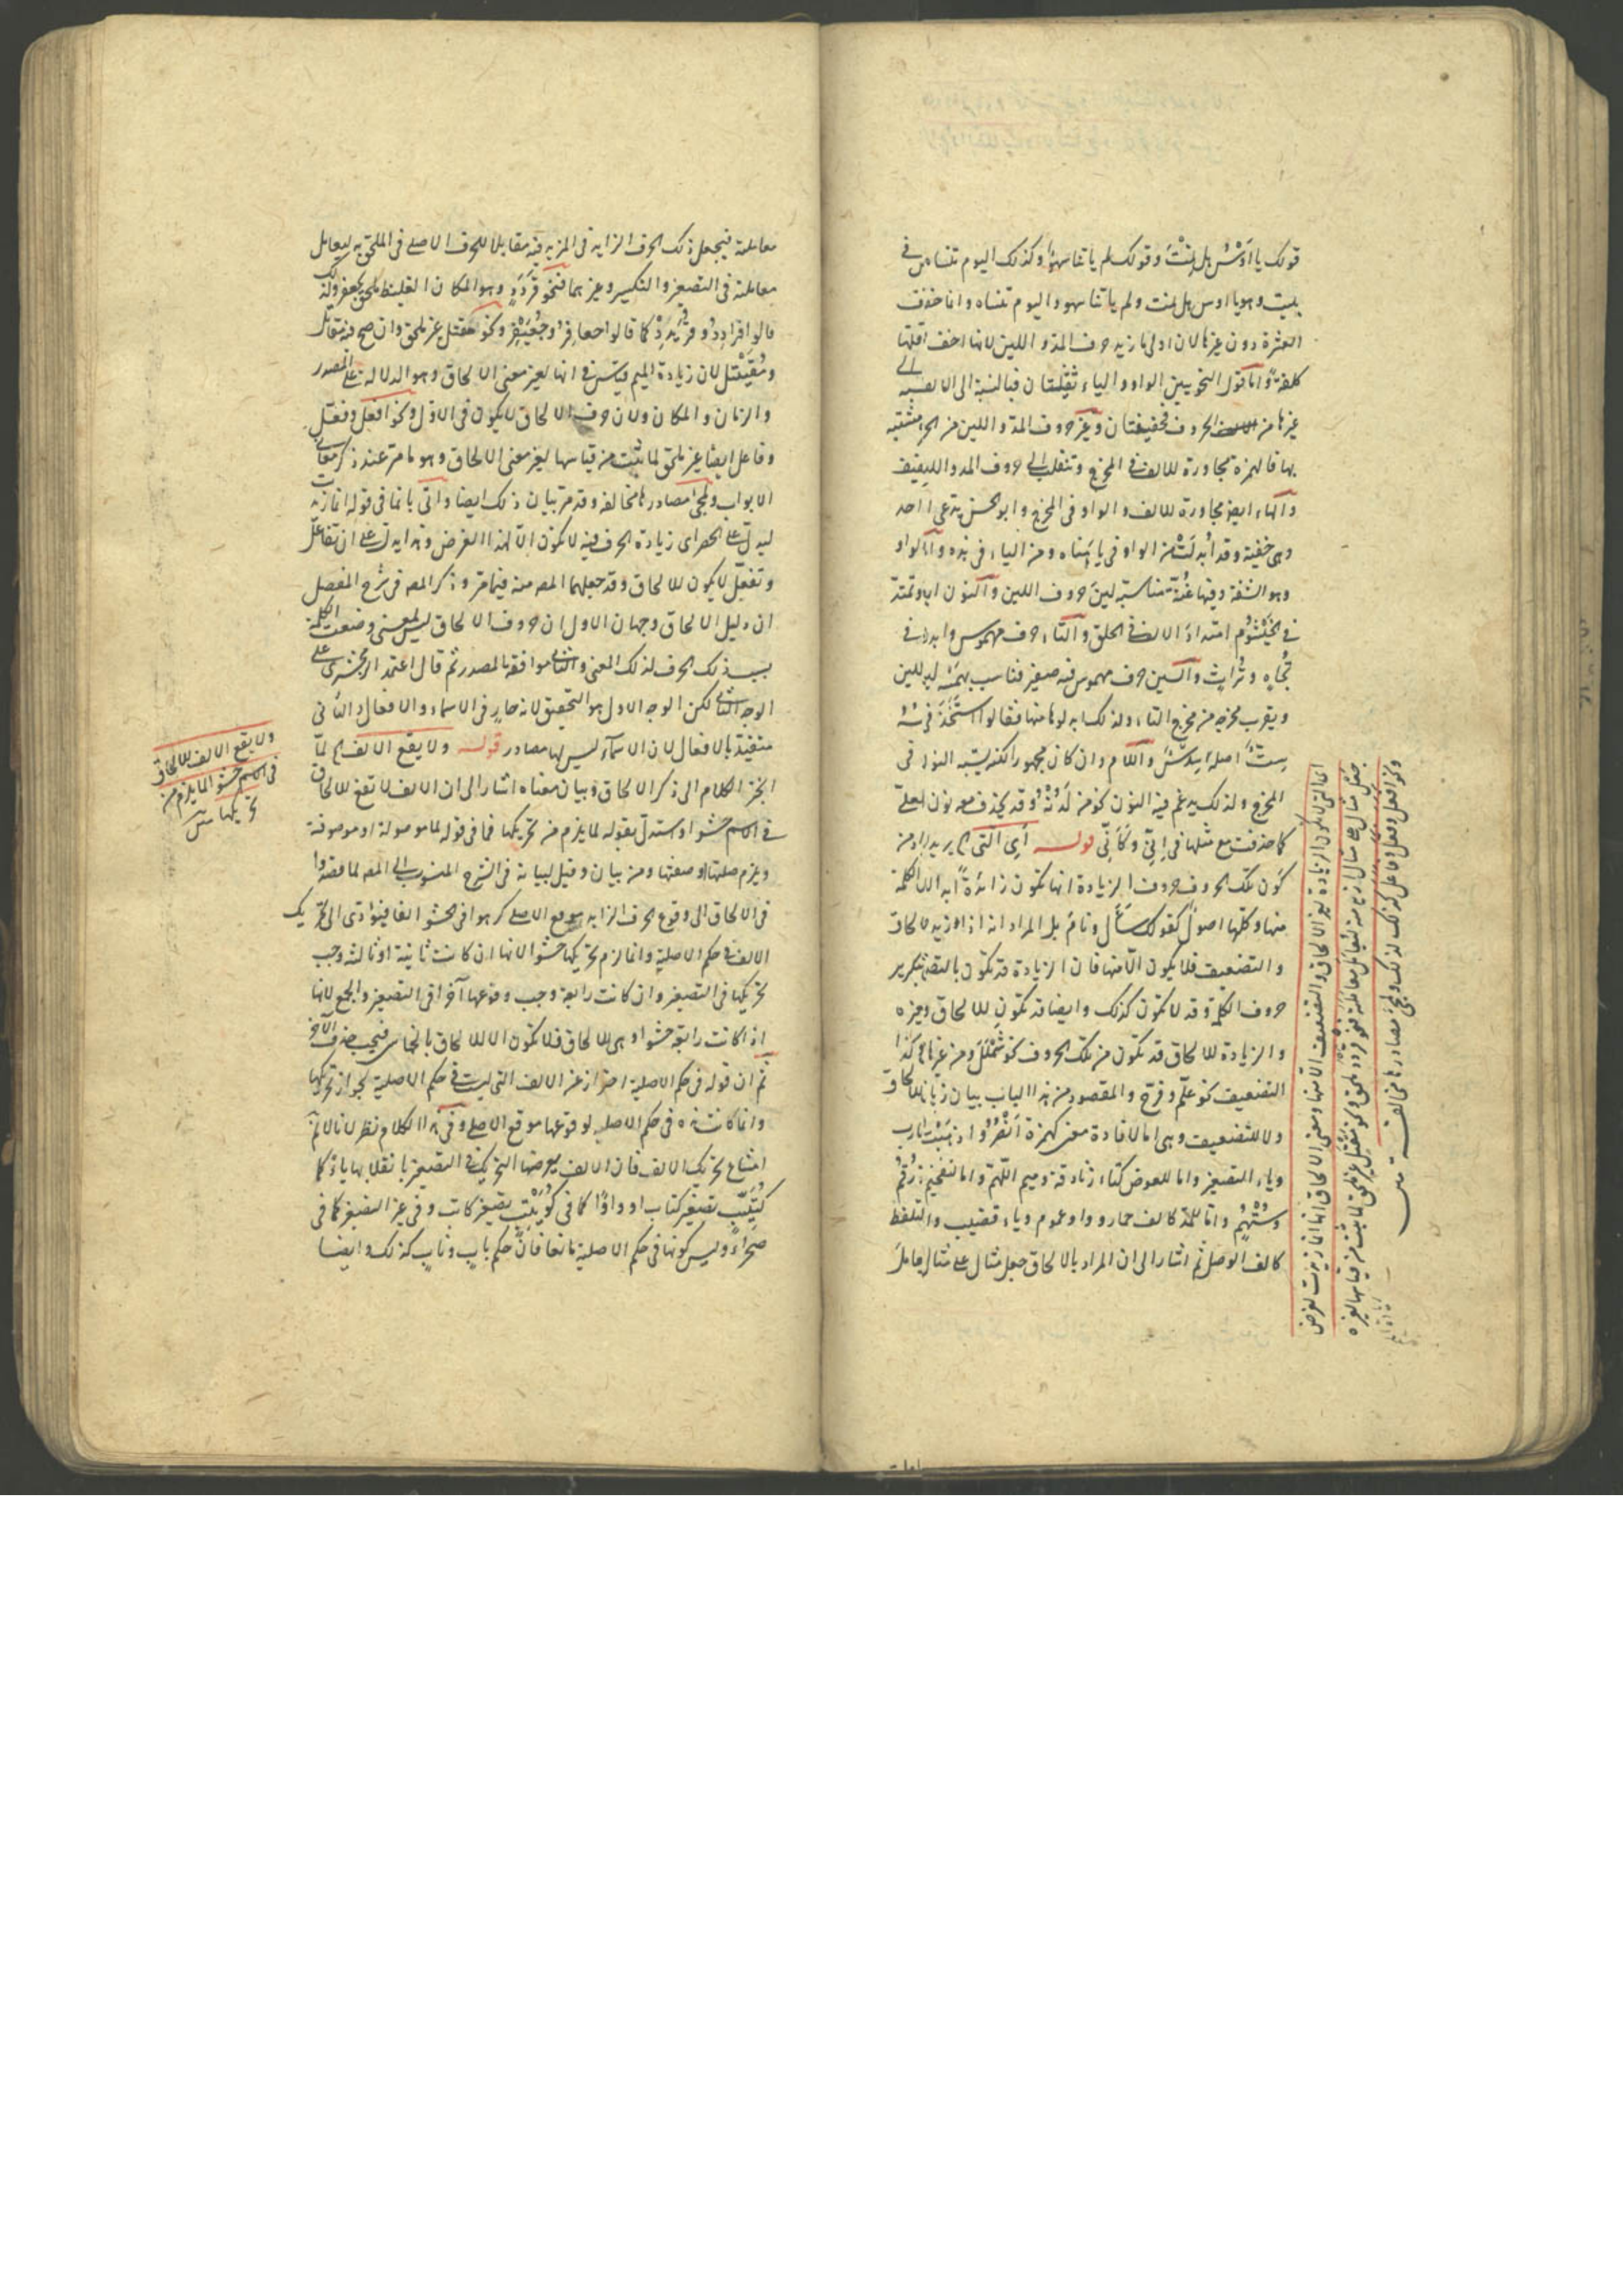 قولك يا اوس هل نمت وقولك لم ياتنا سهو وكذلك اليوم تنساه في
بيت وهو يا اوس هل نمت ولم ياتنا سهو واليوم تنساه وانما خفت
العشرة دون غيرها لان اولى ما زيد حروف المد واللين لانها اخف اقلها
كلفة واما قول النحويين الواو والياء ثقيلتان فبالنسبة الى الالف
غيرها من الحروف فخفيفتان وغير حروف المد واللين من الحروف مشبه
بها فالهمزة مجاورة للالف في المخرج وتنقلب الى حروف المد واللين
والهاء ايضا مجاورة للالف والواو في المخرج وابو الحسن يدعى
وهي خفية وقد ابدلت من الواو في يا هناه ومن الياء في هذه والميم
وهو الشفة وفيها غنة مناسبة لين حروف اللين والنون ايضا وتمتد
في الخيشوم امتداد الالف في الحلق والتاء حرف مهموس وابدل في
تجاه وتراث والسين حرف مهموس فيه صفير فناسب بهمسه لين
ويقرب مخرجه من مخرج التاء ولذلك ابدلوها منها فقالوا استخذ في
ست اصله سدس واللام وان كان مجهورا لكنه يشبه النون في
المخرج ولذلك يدغم فيه النون نحو من لدنه وقد يحذف معه نون لعلي
كما حذفت مع مثلها في اني وكاني قوله اي التي الخ يريد المراد من
كون تلك الحروف حروف الزيادة انها تكون زائدة ابدا لان الكلمة
منها وكلها اصول كقولك سأل ونام بل المراد انه اذا زيد لالحاق
والتضعيف فلا يكون الا منها فان الزيادة قد تكون بالتضعيف بتكرير
حروف الكلمة وقد لا تكون كذلك وايضا قد تكون للالحاق وغيره
والزيادة للالحاق قد تكون من تلك الحروف نحو شملل ومن غيرها وكذا
التضعيف نحو علم وفرح والمقصود من هذا الباب بيان زيادة لا للالحاق
ولا للتضعيف وهي اما لافادة معنى كهمزة
وياء التصغير واما للعوض كتاء زنادقة وميم اللهم واما للتفخيم زرقم
وستهم واما للمد كالف حمار وواو عموم وياء قضيب والتلفظ
كالف الوصل ثم اشار الى ان المراد بالالحاق جعل مثال على مثال ليعامل
اي التي لا تكون الزيادة لغير الالحاق والتضعيف الا منها ومعنى الالحاق انها انما زيدت لغرض
جعل مثال على مثال ازيد منه ليعامل معاملته فنحو قردد ملحق ونحو مقتل غير ملحق لما ثبت من قياسها لغيره
ونحو افعل وفعل وفاعل كذلك لذلك ولمجئ مصادرها مخالفة متن
معاملته فيجعل ذلك الحرف الزايد في المزيد فيه مقابلا للحرف الاصلي في الملحق به ليعامل
معاملته في التصغير والتكسير وغيرهما فنحو قردد وهو المكان الغليظ ملحق بجعفر
قالوا قرادد وقريدد كما قالوا جعافر وجعيفر ونحو مقتل غير ملحق وان صح فيه مقاتل
ومقيتل لان زيادة الميم قياس في انها لغير معنى الالحاق وهو الدلالة على المصدر
والزمان والمكان ولان حرف الالحاق لا يكون في الاول ونحو افعل وفعل
وفاعل ايضا غير ملحق لما ثبت من قياسها لغير معنى الالحاق وهو ما مر عند ذكر معاني
الابواب ولمجئ مصادرها مخالفة وقد مر بيان ذلك ايضا واتى بانما في قوله انما زيدت
ليدل على الحصر اي زيادة الحرف فيه لا تكون الا لهذا الغرض وهذا يدل على ان تفاعل
وتفعل لا يكون للالحاق وقد جعلهما المص منه فيما مر وذكر المص في شرح المفصل
ان دليل الالحاق وجهان الاول ان حروف الالحاق ليس لمعنى وضعت الكلمة
بسبب ذلك الحرف لذلك المعنى والثاني موافقة المصدر ثم قال اعتمد الزمخشري على
الوجه الثاني لكن الوجه الاول هو التحقيق لانه جار في الاسماء والافعال والثاني
متقيد بالافعال لان الاسماء ليس لها مصادر قوله ولا يقع الالف الخ لما
انجر الكلام الى ذكر الالحاق وبيان معناه اشار الى ان الالف لا تقع للالحاق
في الاسم حشوا واستدل بقوله لما يلزم من تحريكها فما في قوله لما موصولة او موصوفة
ويلزم صلتها او صفتها ومن بيان وقيل لبيانه في الشرح المنسوب الى المص لما قصدوا
في الالحاق الى وقوع الحرف الزايد موقع الاصلي كرهوا في الحشو الفا فيؤدي الى تحريك
الالف في حكم الاصلية وانما لزم تحريكها حشوا لانها ان كانت ثانية او ثالثة وجب
تحريكها في التصغير وان كانت رابعة وجب وقوعها آخرا في التصغير والجمع لانها
اذا كانت رابعة حشوا وهي للالحاق فلا تكون الا للالحاق بالخماسي فيجب حذف الآخر
ثم ان قوله في حكم الاصلية احتراز عن الالف التي ليست في حكم الاصلية لجواز تحركها
وانما كانت هذه في حكم الاصلية لوقوعها موقع الاصلي وفي هذا الكلام نظر لانا لا نم
امتناع تحريك الالف فان الالف يعرضها التحريك في التصغير بانقلابها ياء كما
كتيب تصغير كتاب او واوا كما في كويتب تصغير كاتب وفي غير التصغير كما في
صحراء وليس كونها في حكم الاصلية مانعا فان حكم باب وناب كذلك وايضا
ولا يقع الالف للالحاق
في الاسم حشوا لما يلزم من
تحريكها متن